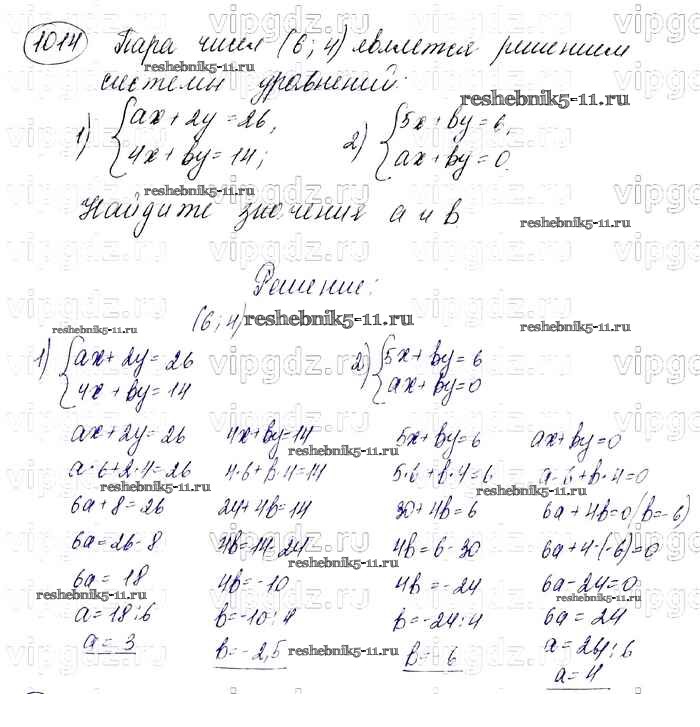 1014 Пара чисел (6; 4) является решением
системы уравнений:
1) { ax + 2y = 26, 2) { 5x + by = 6,
4x + by = 14; ax + by = 0.
Найдите значения a и b
Решение:
(6; 4)
1) { ax + 2y = 26 2) { 5x + by = 6
4x + by = 14 ax + by = 0
ax + 2y = 26 4x + by = 14 5x + by = 6 ax + by = 0
a·6 + 2·4 = 26 4·6 + b·4 = 14 5·6 + b·4 = 6 a·6 + b·4 = 0
6a + 8 = 26 24 + 4b = 14 30 + 4b = 6 6a + 4b = 0 (b = -6)
6a = 26 - 8 4b = 14 - 24 4b = 6 - 30 6a + 4·(-6) = 0
6a = 18 4b = -10 4b = -24 6a - 24 = 0
a = 18 : 6 b = -10 : 4 b = -24 : 4 6a = 24
a = 3 b = -2,5 b = -6 a = 24 : 6
a = 4
vipgdz.ru
reshebnik5-11.ru